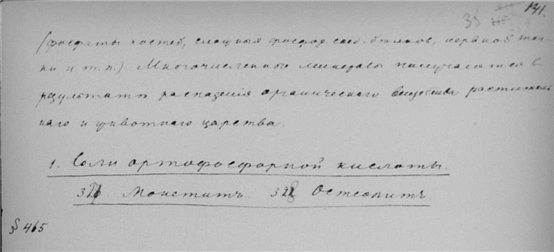 141.
33
(фосфаты костей, сложныя фосфор. соед. белков, нервной тка-
ни и т.п.). Многочисленные минералы получаются в
результатѣ распадения органическаго вещества раститель-
наго и животнаго царства.
1. Соли ортофосфорной кислоты.
Монетитъ. Остеолитъ
§ 465